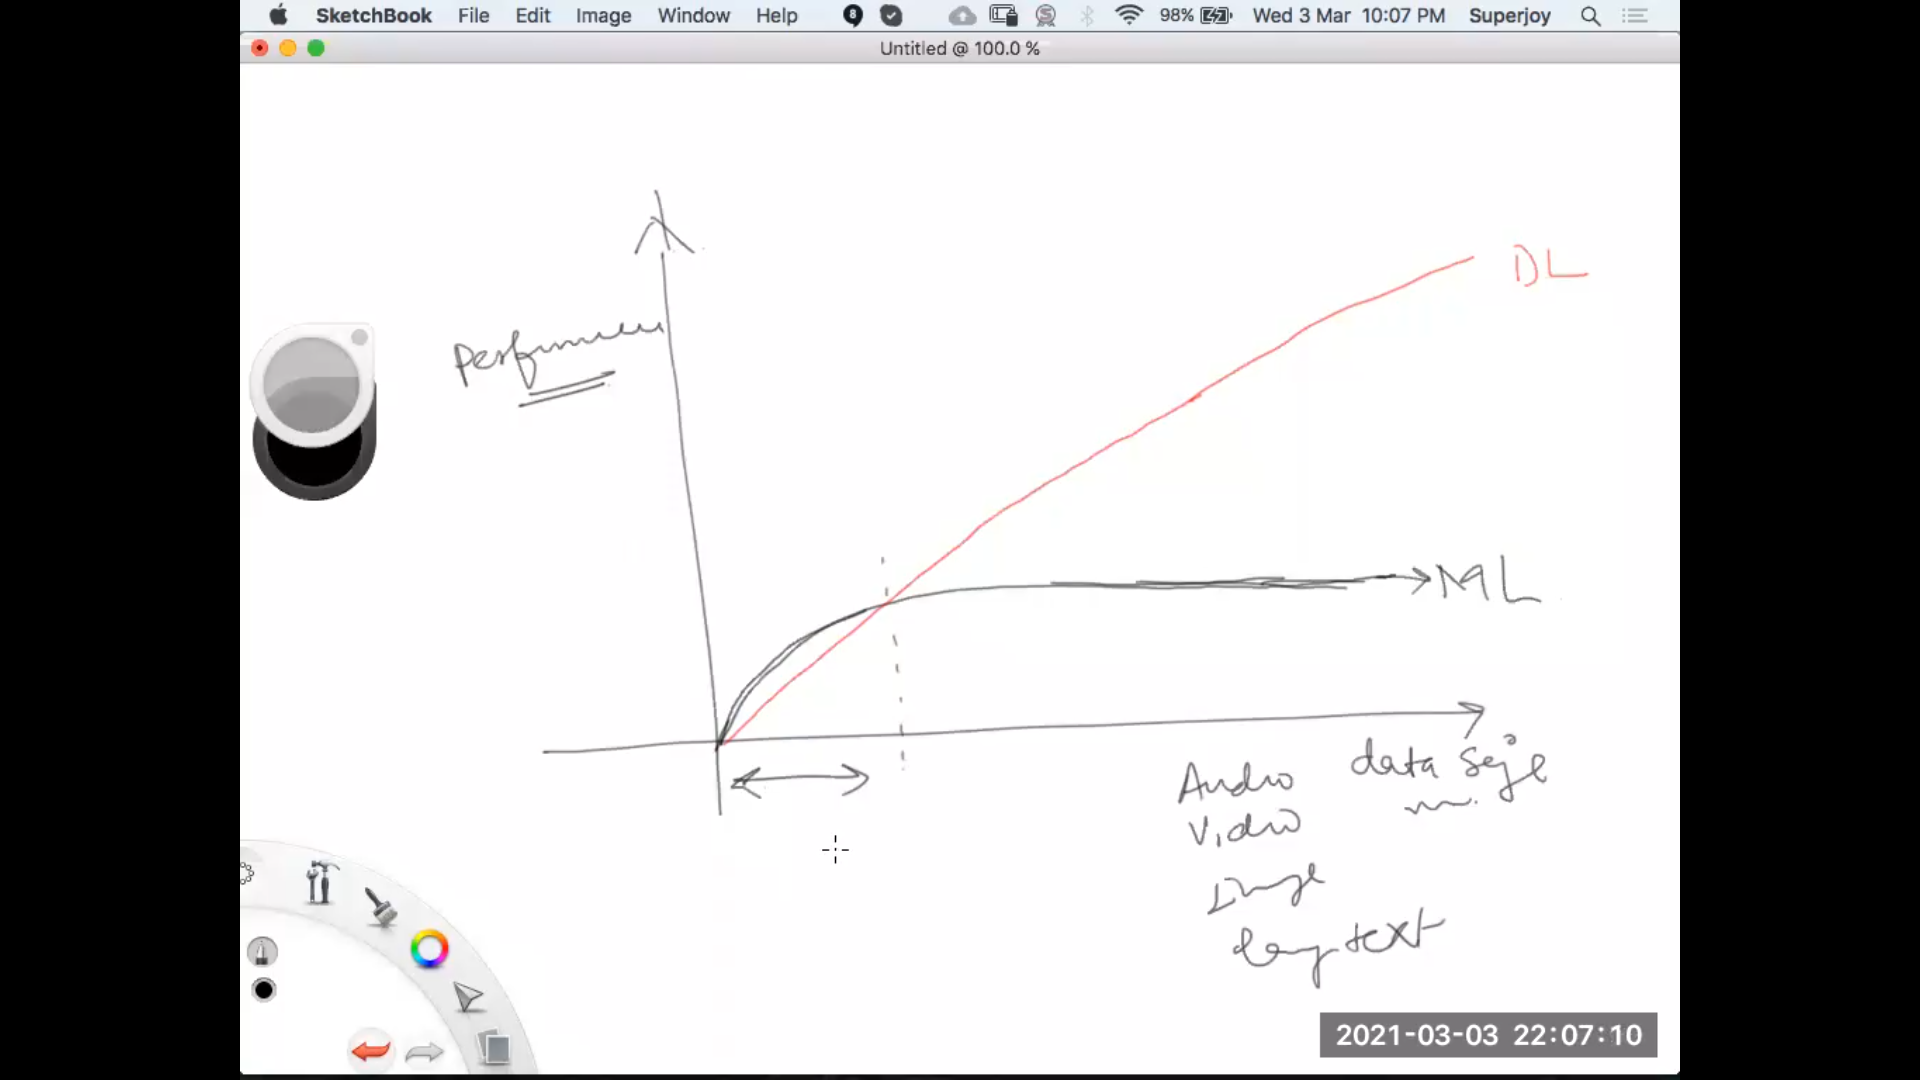 SketchBook File Edit Image Window Help 8 98% Wed 3 Mar 10:07 PM Superjoy
Untitled @ 100.0 %
DL
Performance
ML
data size
Audio
Video
Image
long text
2021-03-03 22:07:10